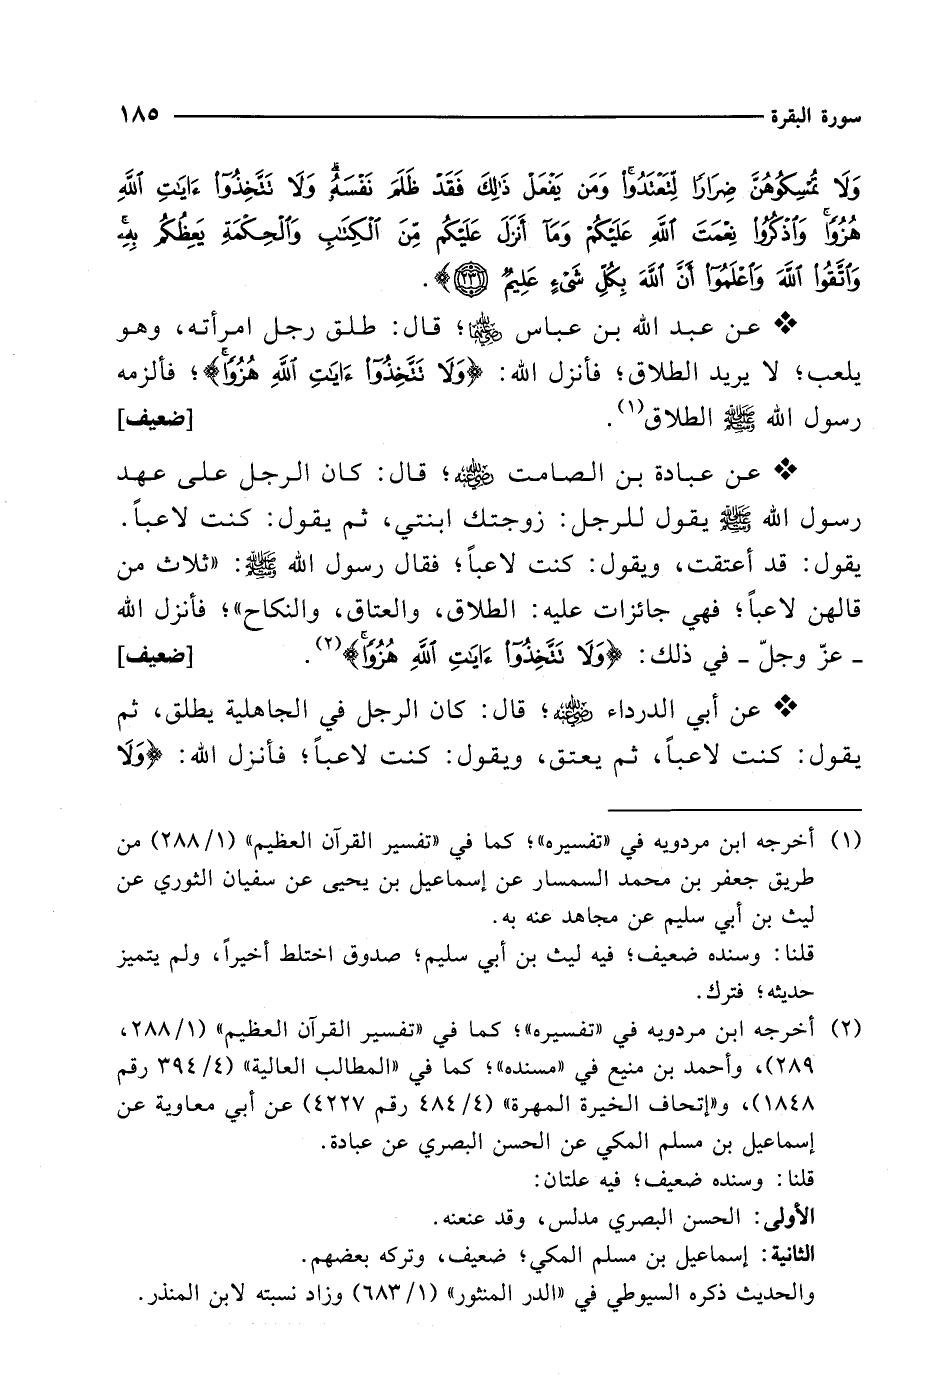 سورة البقرة ١٨٥
وَلَا تُمْسِكُوهُنَّ ضِرَارًا لِّتَعْتَدُوا۟ ۚ وَمَن يَفْعَلْ ذَٰلِكَ فَقَدْ ظَلَمَ نَفْسَهُۥ ۗ وَلَا تَتَّخِذُوٓا۟ ءَايَٰتِ ٱللَّهِ
هُزُوًا ۚ وَٱذْكُرُوا۟ نِعْمَتَ ٱللَّهِ عَلَيْكُمْ وَمَآ أَنزَلَ عَلَيْكُم مِّنَ ٱلْكِتَٰبِ وَٱلْحِكْمَةِ يَعِظُكُم بِهِۦ ۚ
وَٱتَّقُوا۟ ٱللَّهَ وَٱعْلَمُوٓا۟ أَنَّ ٱللَّهَ بِكُلِّ شَىْءٍ عَلِيمٌ ٢٣١﴾.
❖ عن عبد الله بن عباس ﵄؛ قال: طلق رجل امرأته، وهو
يلعب؛ لا يريد الطلاق؛ فأنزل الله: ﴿وَلَا تَتَّخِذُوٓا۟ ءَايَٰتِ ٱللَّهِ هُزُوًا ۚ﴾؛ فألزمه
رسول الله ﷺ الطلاق(١). [ضعيف]
❖ عن عبادة بن الصامت ﵁؛ قال: كان الرجل على عهد
رسول الله ﷺ يقول للرجل: زوجتك ابنتي، ثم يقول: كنت لاعباً.
يقول: قد أعتقت، ويقول: كنت لاعباً؛ فقال رسول الله ﷺ: «ثلاث من
قالهن لاعباً؛ فهي جائزات عليه: الطلاق، والعتاق، والنكاح»؛ فأنزل الله
ـ عزّ وجلّ ـ في ذلك: ﴿وَلَا تَتَّخِذُوٓا۟ ءَايَٰتِ ٱللَّهِ هُزُوًا ۚ﴾(٢). [ضعيف]
❖ عن أبي الدرداء ﵁؛ قال: كان الرجل في الجاهلية يطلق، ثم
يقول: كنت لاعباً، ثم يعتق، ويقول: كنت لاعباً؛ فأنزل الله: ﴿وَلَا
(١) أخرجه ابن مردويه في «تفسيره»؛ كما في «تفسير القرآن العظيم» (١/ ٢٨٨) من
طريق جعفر بن محمد السمسار عن إسماعيل بن يحيى عن سفيان الثوري عن
ليث بن أبي سليم عن مجاهد عنه به.
قلنا: وسنده ضعيف؛ فيه ليث بن أبي سليم؛ صدوق اختلط أخيراً، ولم يتميز
حديثه؛ فترك.
(٢) أخرجه ابن مردويه في «تفسيره»؛ كما في «تفسير القرآن العظيم» (١/ ٢٨٨،
٢٨٩)، وأحمد بن منيع في «مسنده»؛ كما في «المطالب العالية» (٤/ ٣٩٤ رقم
١٨٤٨)، و«إتحاف الخيرة المهرة» (٤/ ٤٨٤ رقم ٤٢٢٧) عن أبي معاوية عن
إسماعيل بن مسلم المكي عن الحسن البصري عن عبادة.
قلنا: وسنده ضعيف؛ فيه علتان:
الأولى: الحسن البصري مدلس، وقد عنعنه.
الثانية: إسماعيل بن مسلم المكي؛ ضعيف، وتركه بعضهم.
والحديث ذكره السيوطي في «الدر المنثور» (١/ ٦٨٣) وزاد نسبته لابن المنذر.